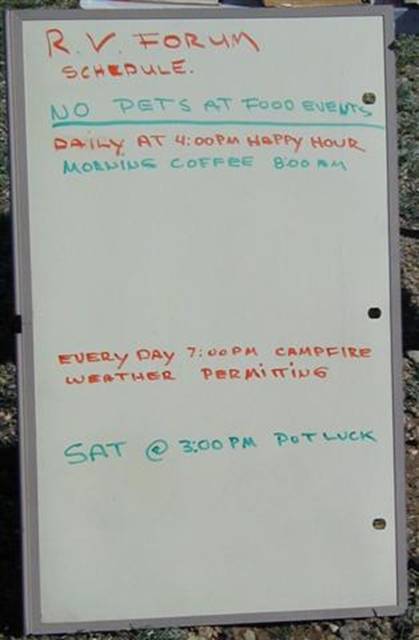 R.V. FORUM
SCHEDULE.
NO PETS AT FOOD EVENTS
DAILY AT 4:00PM HAPPY HOUR
MORNING COFFEE 8:00 AM
EVERY DAY 7:00PM CAMPFIRE
WEATHER PERMITTING
SAT @ 3:00PM POTLUCK